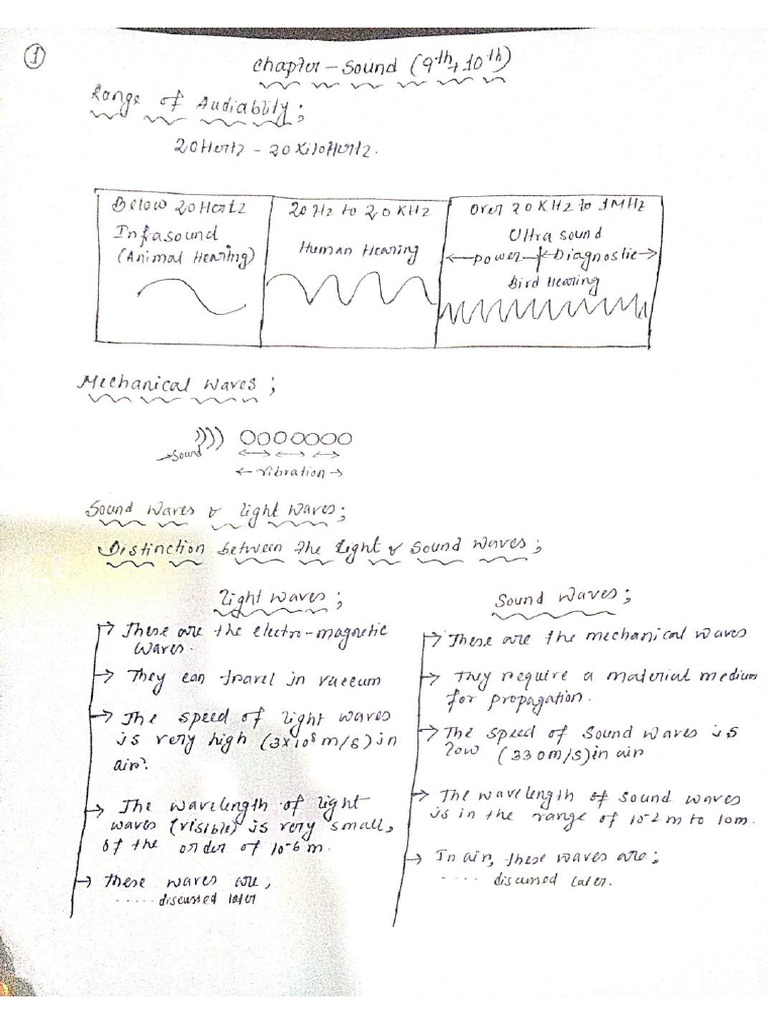 1
Chapter - Sound (9th + 10th)
Range of Audiablity;
20 Hertz - 20 KiloHertz.
Below 20 Hertz
Infasound
(Animal Hearing)
20 Hz to 20 KHz
Human Hearing
Over 20 KHz to 1 MHz
Ultra sound
Power Diagnostic
Bird Hearing
Mechanical Waves;
→ Sound
← vibration →
Sound Waves & Light Waves;
Distinction between the Light & Sound Waves;
Light Waves;
→ These are the electro-magnetic
waves.
→ They can travel in vaccum
→ The speed of light waves
is very high (3x10⁸ m/s) in
air.
→ The wavelength of light
waves (visible) is very small,
of the order of 10-6 m.
→ These waves are;
..... discussed later
Sound Waves;
→ These are the mechanical waves
→ They require a material medium
for propagation.
→ The speed of Sound waves is
low (330 m/s) in air
→ The wavelength of sound waves
is in the range of 10-2 m to 10m.
→ In air, these waves are;
.... discussed later.